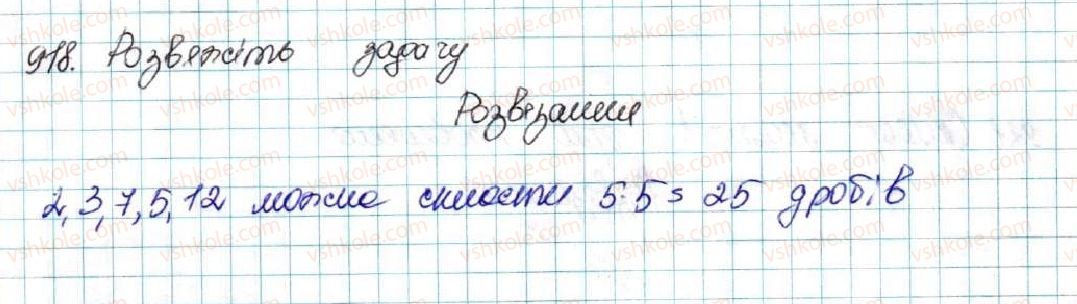 918. Розвяжіть задачу
Розвязання
2, 3, 7, 5, 12 можна скласти 5·5= 25 дробів